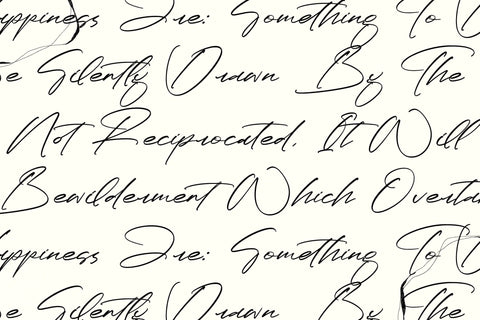 ppiness Are: Something To D
e Silently Drawn By The
Not Reciprocated, It Will
Bewilderment Which Overta
ppiness Are: Something To D
e Silently Drawn By The